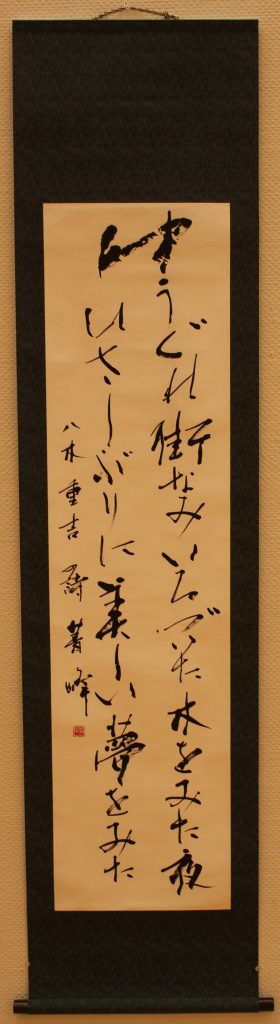 ゆうぐれ街なみいろづいた木をみた夜
ひさしぶりに美しい夢をみた
八木重吉 詩 菁峰